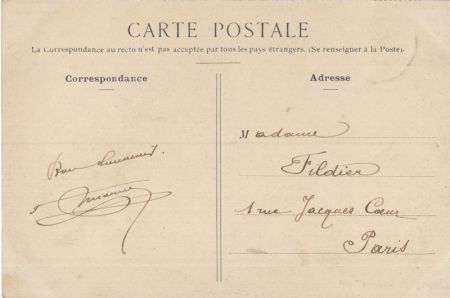 CARTE POSTALE
La Correspondance au recto n'est pas acceptée par tous les pays étrangers. (Se renseigner à la Poste).
Correspondance
Bon
Adresse
Madame
Fildier
1 rue Jacques Cœur
Paris